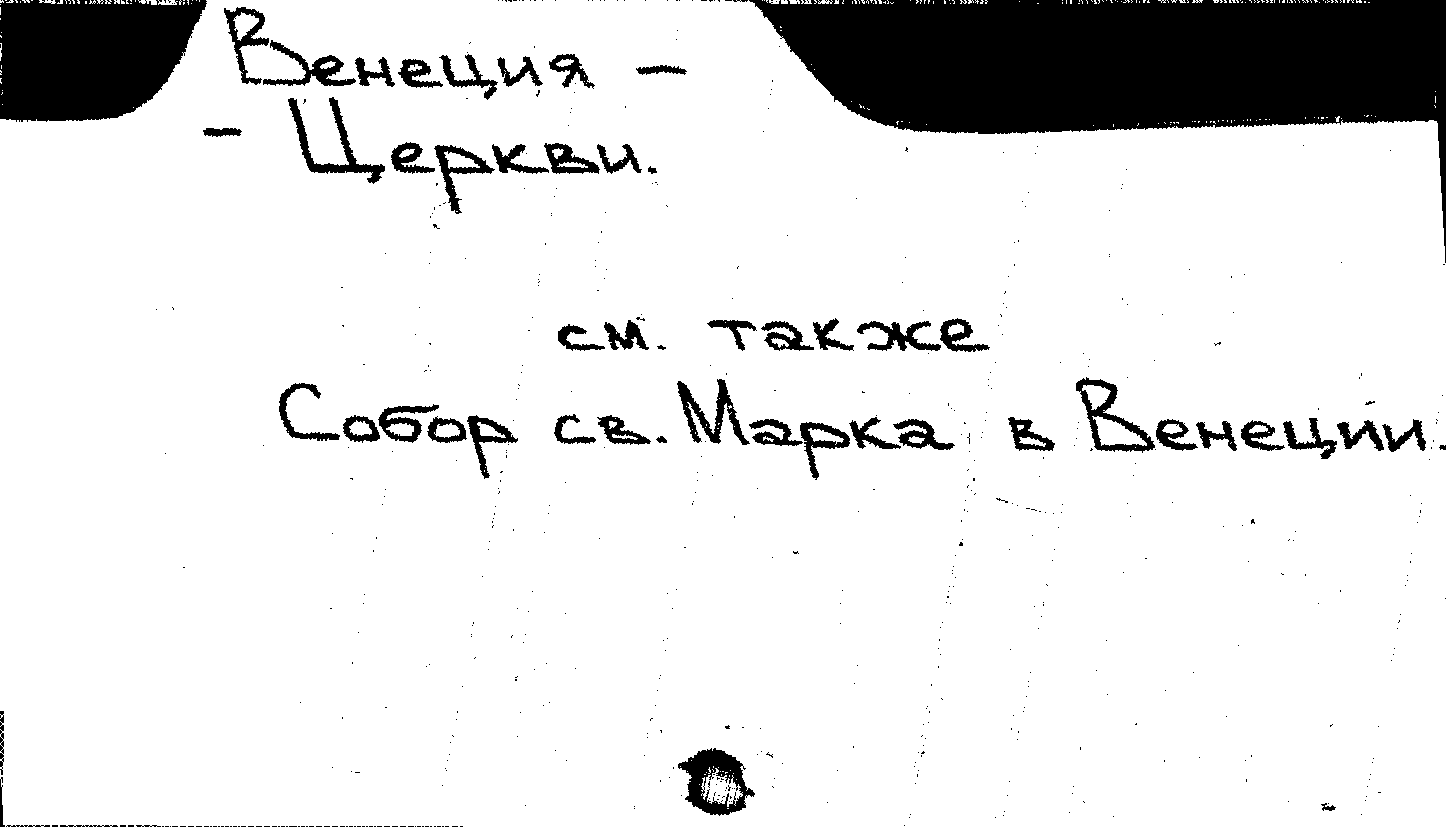 Венеция –
– Церкви.
см. также
Собор св. Марка в Венеции.